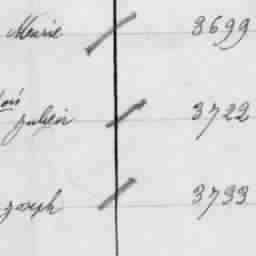 Meurie 3699
Julien 3722
Joseph 3733